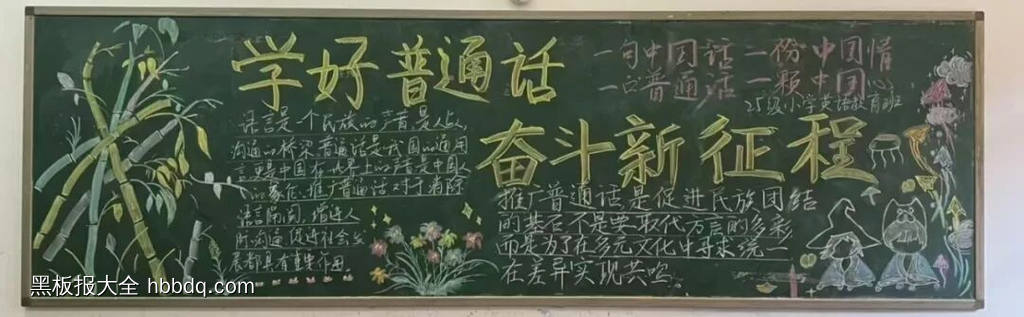 学好普通话
一句中国话 一份中国情
一口普通话 一颗中国心
25级小学英语教育班
奋斗新征程
语言是一个民族的声音是人心
沟通的桥梁普通话是我国的通用
言更是中国在世界上的声音是中国人
的象征.推广普通话对于消除
语言隔阂,增进人
际沟通促进社会发
展都具有重要作用
推广普通话是促进民族团结
的基石不是要取代方言的多彩
而是为了在多元文化中寻求统一
在差异实现共鸣。
黑板报大全 hbbdq.com